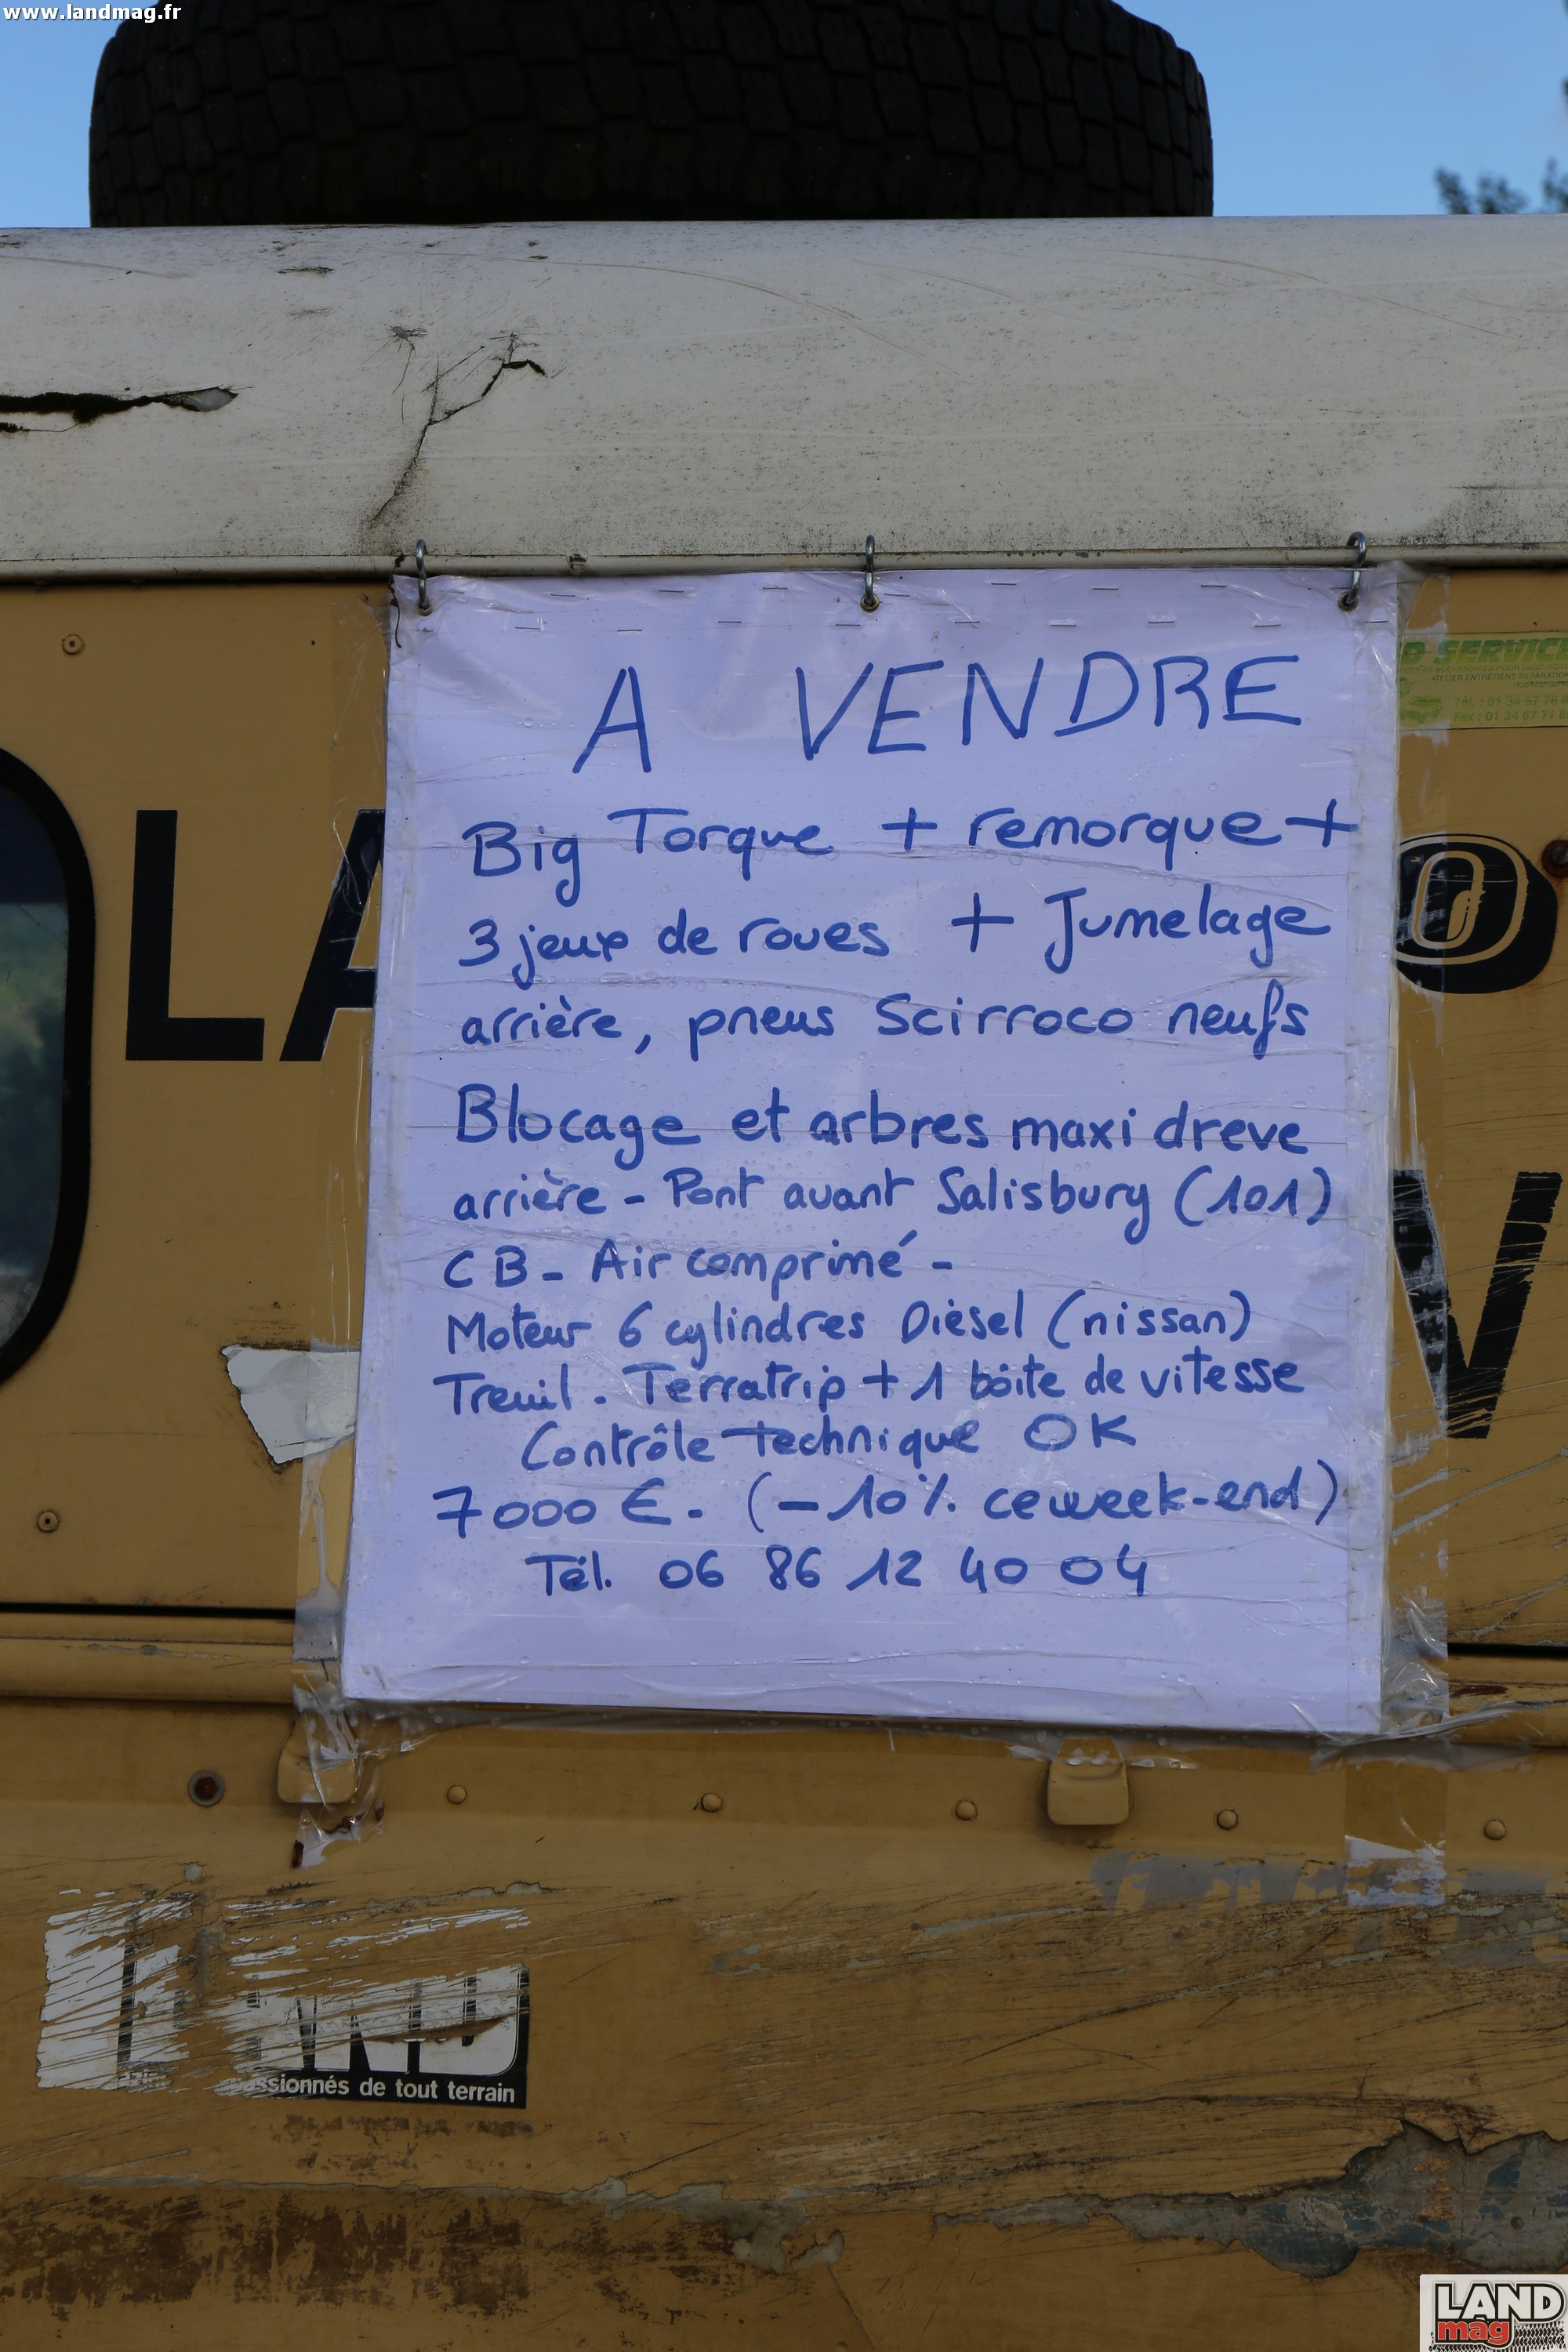 www.landmag.fr
A VENDRE
Big Torque + remorque +
3 jeux de roues + Jumelage
arrière, pneus Scirroco neufs
Blocage et arbres maxi dreve
arrière - Pont avant Salisbury (101)
CB - Air comprimé -
Moteur 6 cylindres Diésel (nissan)
Treuil. Terratrip + 1 bôite de vitesse
Contrôle technique OK
7000 €. (-10% ce week-end)
Tél. 06 86 12 40 04
SERVICE
Tél. : 01 34 67 76
Fax : 01 34 67 71
LA
O
V
ssionnés de tout terrain
LAND
mag